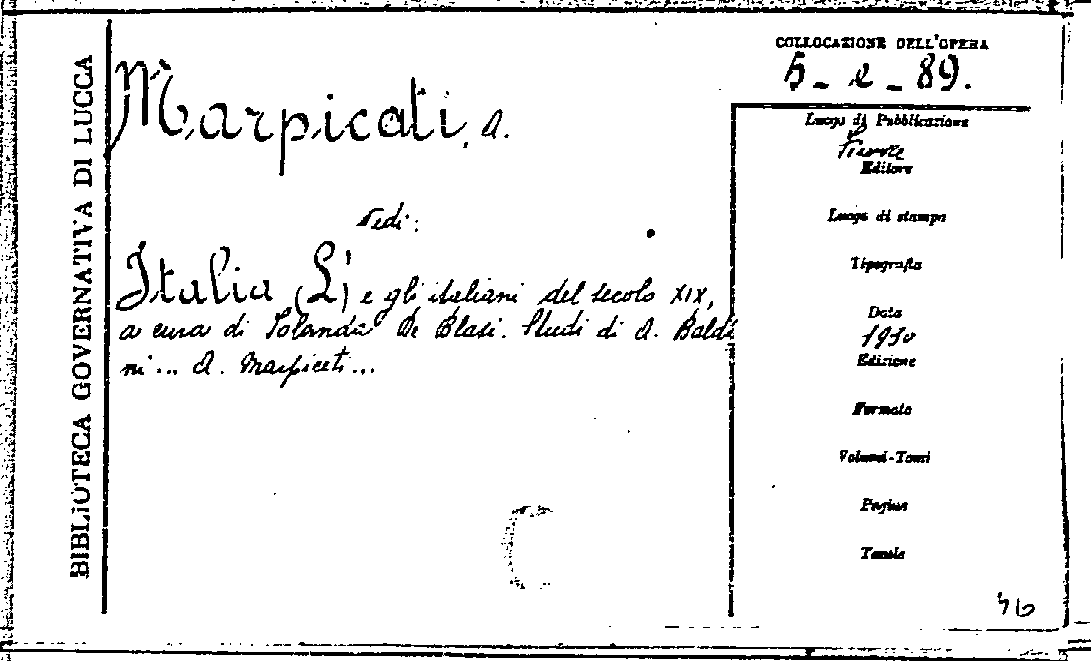 BIBLIOTECA GOVERNATIVA DI LUCCA
Marpicati, A.
Vedi:
Italia (L') e gli italiani del secolo XIX,
a cura di Iolanda De Blasi. Studi di A. Baldi
ni... A. Marpicati...
C
COLLOCAZIONE DELL'OPERA
5 - e - 89.
Luogo di Pubblicazione
Firenze
Editore
Luogo di stampa
Tipografia
Data
1930
Edizione
Formato
Volumi-Tomi
Pagine
Tavole